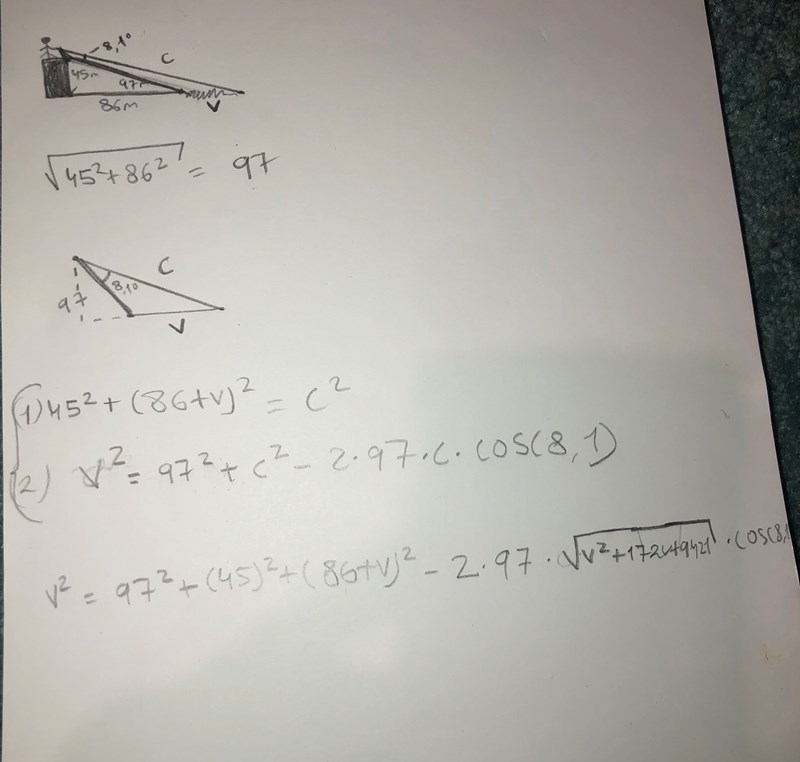 8,1°
C
45m
97m
86m
V
√45²+86² = 97
C
8,1°
97
V
(1) 45² + (86+V)² = C²
(2) V² = 97² + C² - 2·97·C·COS(8,1)
V² = 97² + (45)² + (86+V)² - 2·97·√V²+172V+9421 · COS(8,1